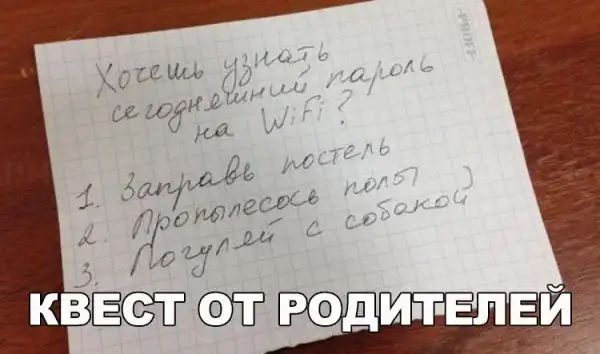 PROFF
Хочешь узнать
сегодняшний пароль
на WiFi?
1. Заправь постель
2. Пропылесось полы
3. Погуляй с собакой
КВЕСТ ОТ РОДИТЕЛЕЙ